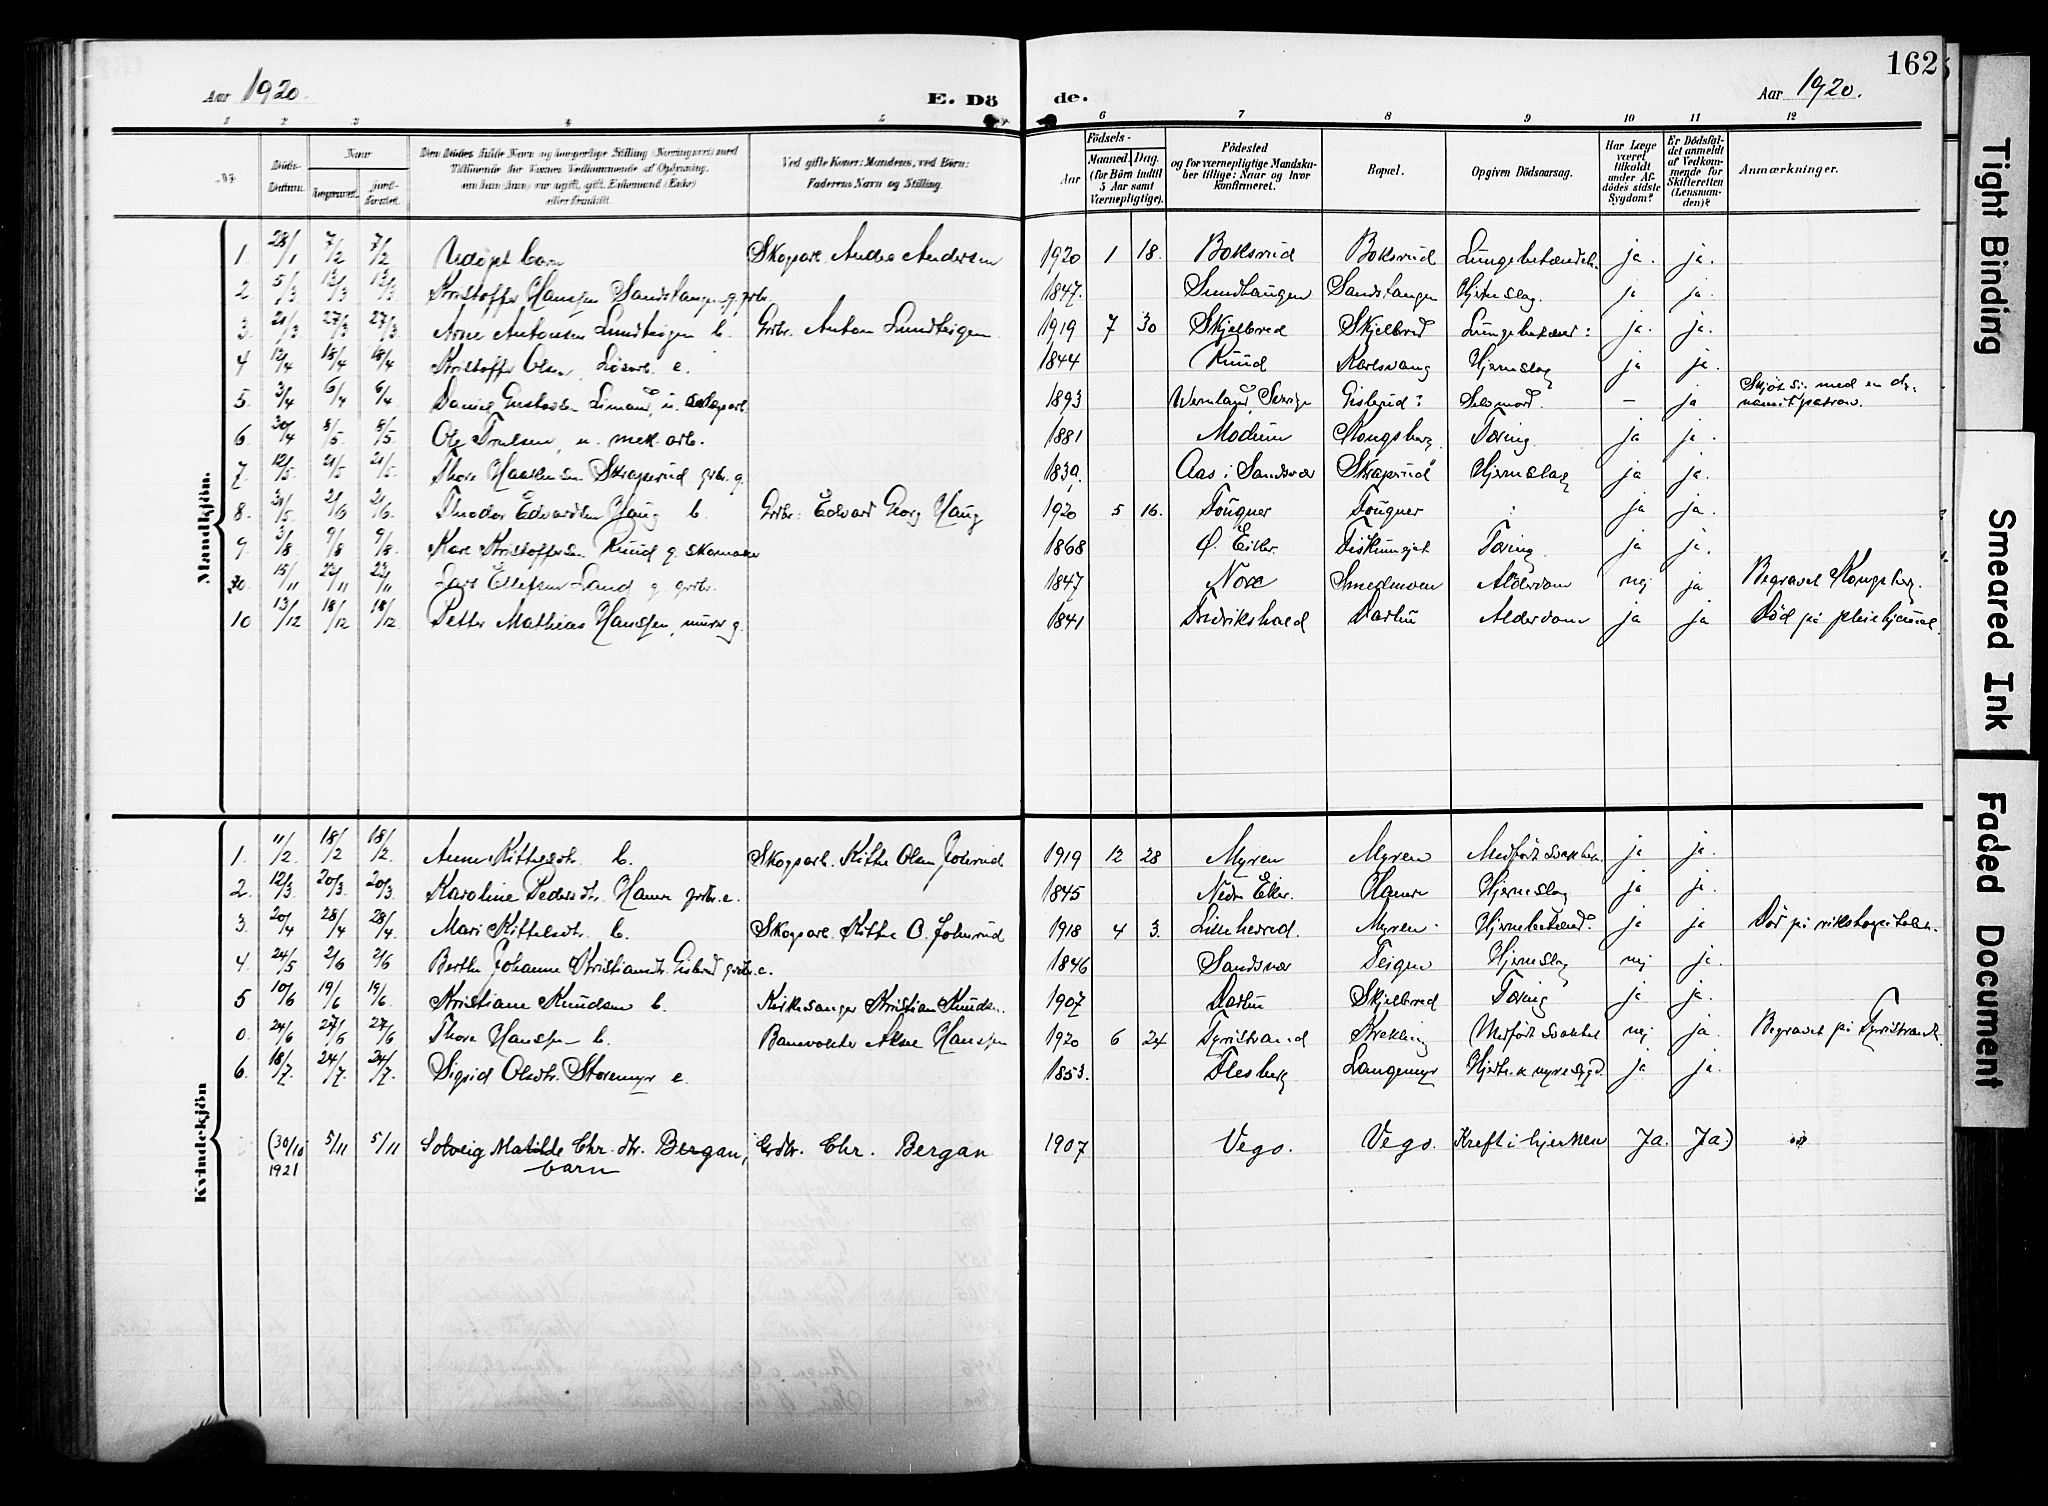 Aar 1920.
E. Döde.
Aar 1920.
162
1 2 3 4 5 6 7 8 9 10 11 12
№
Döds-Datum.
Naar
Begravet.
Jord-fæstet.
Den Dödes fulde Navn og borgerlige Stilling (Næringsvei) med
eller fraskilt.
Ved gifte Koner: Mandens, ved Börn:
Faderens Navn og Stilling.
Födsels-
Aar
Maaned. Dag.
(for Börn indtil
5 Aar samt
Værnepligtige).
Födested
og for værnepligtige Mandska-
ber tillige: Naar og hvor
konfirmeret.
Bopæl.
Opgiven Dödsaarsag.
Har Læge
været
tilkaldt
under Af-
dödes sidste
Sygdom?
Er Dödsfal-
det anmeldt
af Vedkom-
mende for
Skifteretten
(Lensman-
den)?
Anmærkninger.
Mandkjön.
1. 28/1 7/2 7/2 Udöpt barn Skogsarb. Andreas Andersen 1920 1 18. Boksrud Boksrud ja. ja.
2 5/3 13/3 13/3 Kristoffer Hanssen Sandstangen g. grbr. 1847. Sundhaugen Sandstangen Hjerneslag. ja ja.
3. 21/3 27/3 27/3 Arne Antonsen Lundteigen b. Grbr. Anton Lundteigen 1919 7 30 Skjelbred Skjelbred Lungebetænd: ja. ja.
4 12/4 18/4 18/4 Kristoffer Olsen, e. 1844 Ruud Karlsvang Hjerneslag ja ja.
5. 3/4 6/4 6/4. Daniel Gustavsen u. 1893 Wermland, Sverige Gislerud: Selvmord. – ja Skjöt sig med en dy-
namitpatron.
6. 30/4 8/5. 8/5. Ole Troelsen, u. mek. arb. 1881 Modum Kongsberg. Tæring. ja ja.
7. 12/5. 21/5 21/5. Thore Haakensen Skraperud grbr. g. 1839. Aas i Sandsvær Skraperud Hjerneslag ja ja.
8. 31/5. 2/6 2/6. Theodor Edvardsen Haug b. Grbr. Edvard Georg Haug 1920 5 16. Fouguer Fouguer : ja ja
9. 3/8 9/8 9/8. Kare Kristoffersen Ruud g. skomaker 1868 Ø. Eiker. Tæring. ja ja.
15/11 22/11 22/11 Lars Ellefsen Land g grbr. 1847 Nore Smedmoen Alderdom nej ja Begravet Kongsberg.
10 13/12 18/12 18/12 Petter Mathias Hanssen, murer g. 1841 Fredrikshald Darbu Alderdom ja ja Död på pleiehjemmet.
Kvindekjön
1. 11/2. 18/2 18/2. Anne Kittelsdtr. b. Skogsarb. Kittel Olsen Johnrud 1919 12 28 Myren Myren Medfödt svakhet ja ja.
2. 12/3. 20/3. 20/3 Karoline Pedersdtr. Hamre grbr. e. 1845 Nedre Eiker. Hamre Hjerneslag ja ja.
3. 20/4 28/4 28/4. Mari Kittelsdtr. b. Skogsarb. Kittel O. Johnrud 1918 4 3. Lilleherred. Myren Hjernebetænd. ja ja Död på rikshospitalet.
4 24/5 2/6 2/6 Berthe Johanne Kristiansdtr. Gislerud grbr. e. 1846 Sandsvær Teigen Hjerneslag nej ja.
5 10/6 19/6 19/6. Kristiane Knudsen b. Kirkesanger Kristian Knudsen. 1907 Darbu Skjelbred Tæring ja ja.
0. 24/6 27/6 27/6 Thora Hanssen b. Banevokter Hanssen 1920 6 24 Tyristrand Medfödt svakhet nej ja. Begravet på Tyristrand.
6. 18/7. 24/7. 24/7. Sigrid Olsdtr. Storemyr e. 1853. Flesberg Langemyr Hjerte & nyresygd. ja ja.
(30/10
1921 5/11 5/11 Solveig Matilde Chr. dtr. Bergan,
barn Grdbr. Chr. Bergan 1907 Vego. Vego. Kreft i hjernen Ja. Ja)
Tight Binding
Smeared Ink
Faded Document